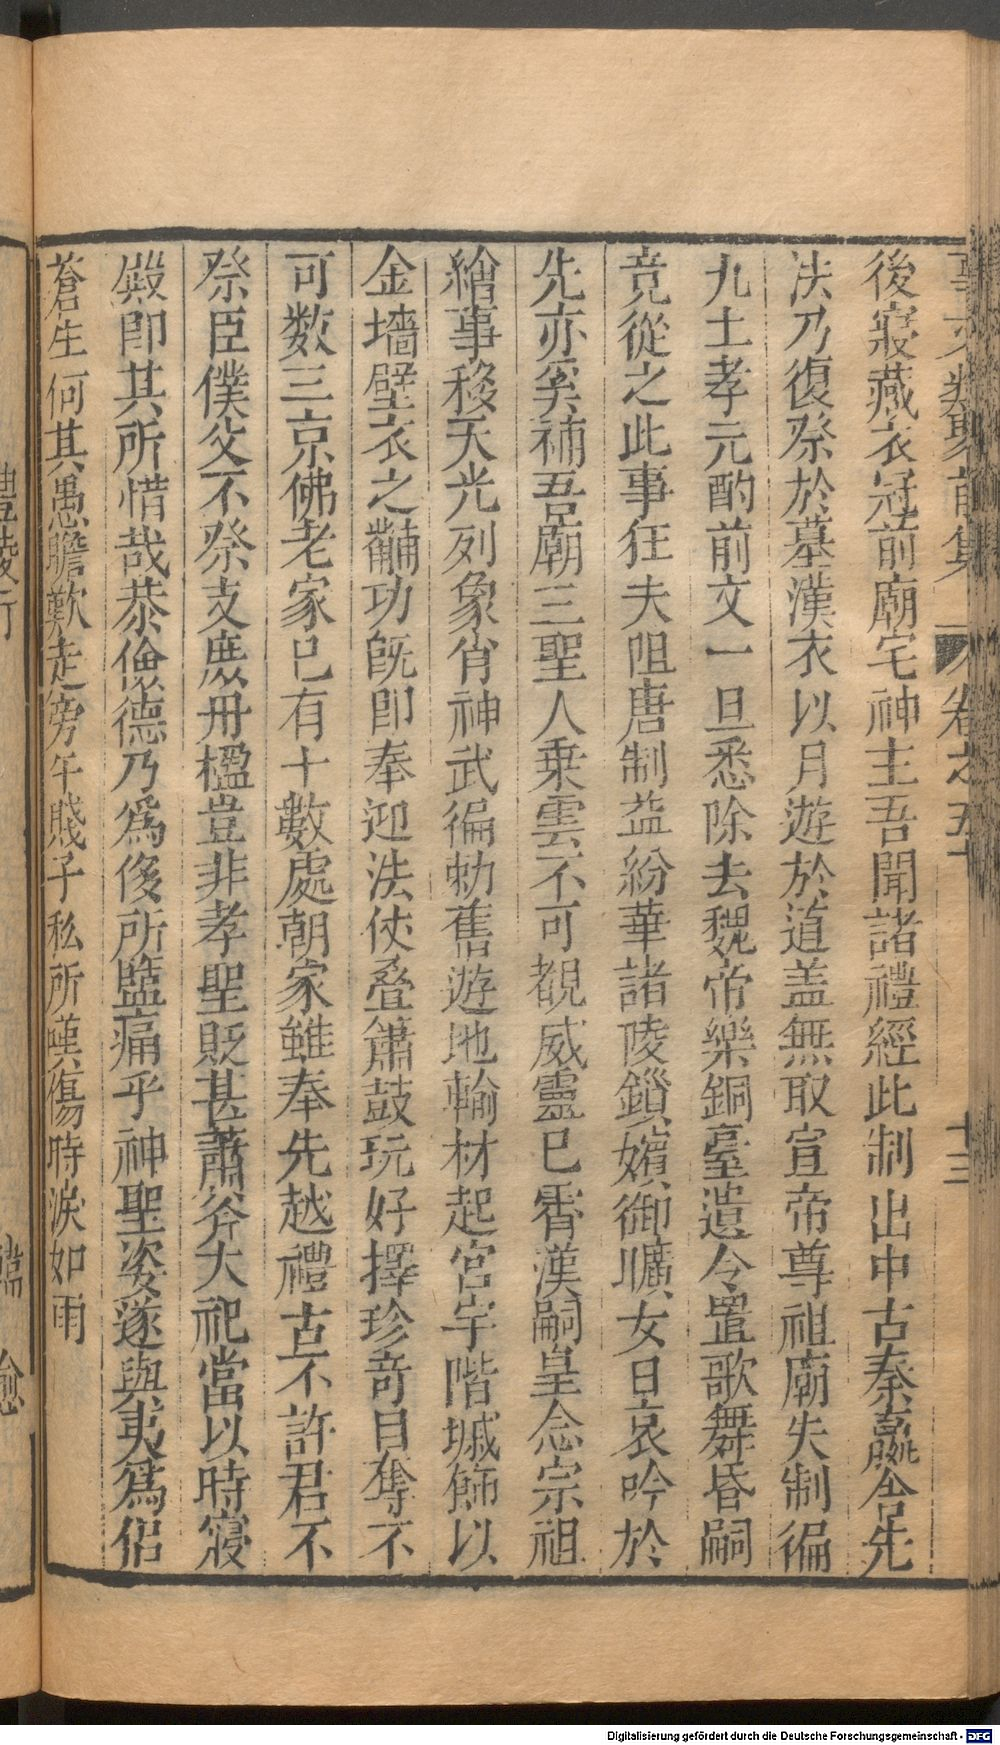 事文類聚前集 卷之五十 十三
後寢藏衣冠前廟宅神主吾聞諸禮經此制出中古秦嬴舍先
法乃復祭於墓漢衣以月遊於道盖無取宣帝尊祖廟失制徧
九土孝元酌前文一旦悉除去魏帝樂銅臺遺令置歌舞昏嗣
竟從之此事狂夫阻唐制益紛華諸陵鎖嬪御曠女日哀吟於
先亦奚補吾廟三聖人乗雲不可覩威靈已霄漢嗣皇念宗祖
繪事移天光列象肖神武徧勑舊遊地輸材起宮宇階墄飾以
金墻壁衣之黼功旣即奉迎法仗疊簫鼓玩好擇珍竒目奪不
可数三京佛老家已有十數處朝家雖奉先越禮古不許君不
祭臣僕父不祭支庶丹楹豈非孝聖貶甚蕭斧大祀當以時寢
殿即其所惜哉恭儉德乃爲侫所監痛乎神聖姿遂與夷爲侣
蒼生何其愚瞻歎走旁午賤子私所嘆傷時淚如雨
Digitalisierung gefördert durch die Deutsche Forschungsgemeinschaft - DFG